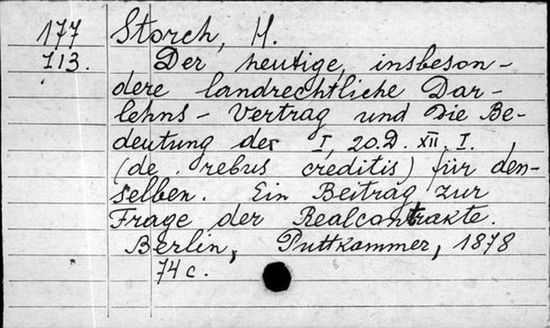 177 Storch, H.
713. Der heutige, insbeson-
dere landrechtliche Dar-
lehns-Vertrag und die Be-
deutung der I, 20. D. XII. I.
(de rebus creditis) für den-
selben. Ein Beitrag zur
Frage der Realcontrakte.
Berlin, Puttkammer, 1878
74 c.